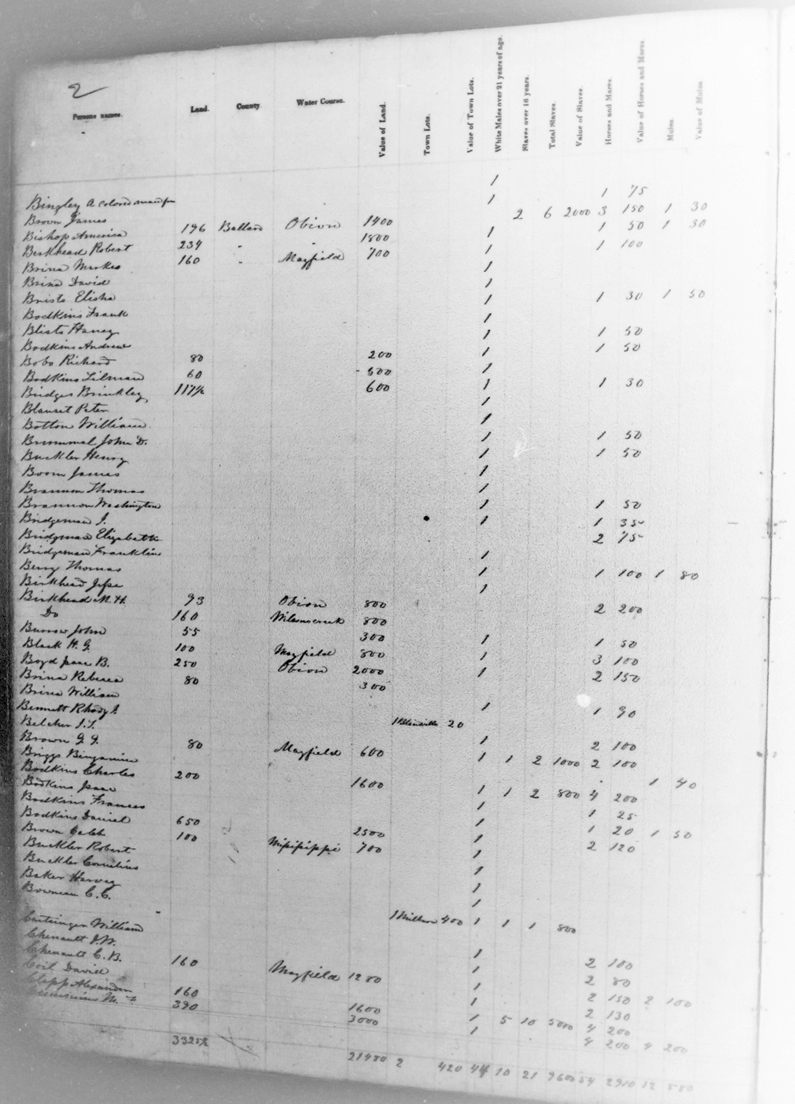 2
Persons names. Land. County. Water Course. Value of Land. Town Lots. Value of Town Lots. White Males over 21 years of age. Slaves over 16 years. Total Slaves. Value of Slaves. Horses and Mares. Value of Horses and Mares. Mules. Value of Mules
Bingley A colored man 1 1 75
Brown James 1 2 6 2000 3 150 1 30
Bishop America 196 Ballard Obion 1400 1 50 1 30
Birkhead Robert 234 " " 1800 1 1 100
Brina 160 Mayfield 700 1
Brina David 1
Bristo Elisha 1 1 30 1 50
Bodkins Frank 1
Haney 1 1 50
Bodkins Andrew 1 1 50
Bobo Richard 80 200 1
Bodkins Tilman 60 500 1 1 30
Bridges Brinkley 117½ 600 1
Peter 1
Botton William 1
Brummal John D. 1 1 50
Buckler Henry 1 1 50
Boom James 1
Brannum Thomas 1
Brannon Washington 1 1 50
Bridgeman J. 1 1 35
Bridgman Elizabeth 2 75
Bridgeman Franklin 1
Berry Thomas 1 1 100 1 80
Birkhead Jesse 1
Birkhead M. H. 93 Obion 800 2 200
Do 160 Wilsons creek 800
Burrow John 55 300 1 1 50
Black H. G. 100 Mayfield 800 1 3 100
Boyd Isaac B. 250 Obion 2000 1 2 150
Brina Rebecca 80 300
Brina William 1 1 90
Bennett Rhody
Belcher 20 1 2 100
Brown 80 Mayfield 600 1 1 2 1000 2 100
Briggs Benjamin 1 1 40
Bodkins Charles 200 1600 1 1 2 800 4 200
Isaac 1 1 25
Bodkins Frances 1 20 1 50
Bodkins Daniel 650 2500 1 2 120
Brown Caleb 100 Mississippi 700 1
Buckler Robert 1
Buckler Cornelius 1
Baker Harvey 1
Bowman C. C. 1
William 1 Milburn 400 1 1 1 800
Chenault
Chenault C. B. 160 Mayfield 1280 1 2 100
Coil David 1 2 80
Clapp Alexander 160 1600 1 2 150 2 100
390 3000 1 5 10 5000 2 130
1 4 200
4 200 4 200
3325½ 21480 2 420 44 10 21 9600 54 2910 12 580